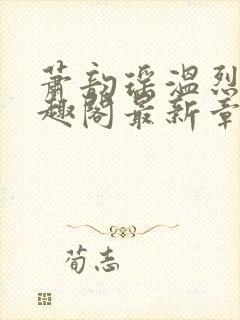 萧韵瑶温烈
趣阁最新章
荀志